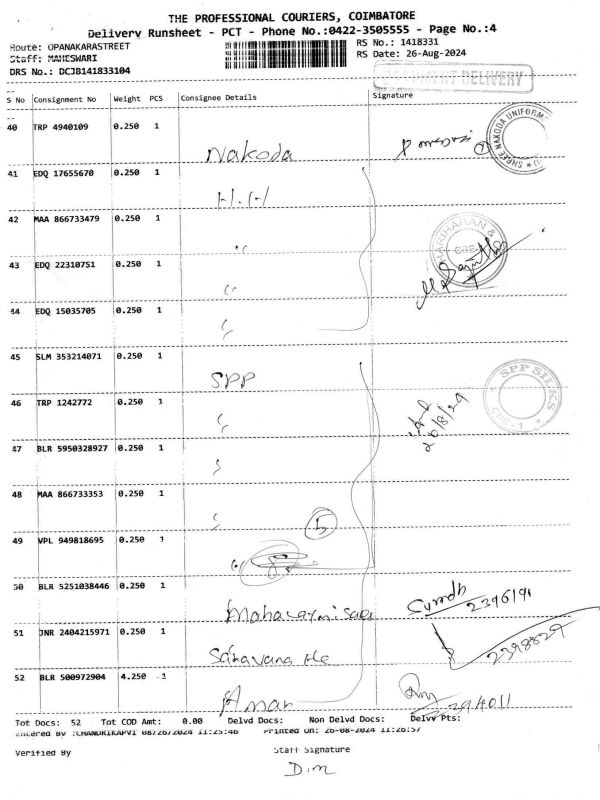 THE PROFESSIONAL COURIERS, COIMBATORE
Delivery Runsheet - PCT - Phone No.:0422-3505555 - Page No.:4
Route: OPANAKARASTREET RS No.: 1418331
Staff: MAHESWARI RS Date: 26-Aug-2024
DRS No.: DCJB141833104
DELIVERY
S No Consignment No Weight PCS Consignee Details Signature
40 TRP 4940109 0.250 1 Nakoda
SHREE NAKODA UNIFORM
41 EDQ 17655670 0.250 1 H.H
42 MAA 866733479 0.250 1 "
HARIHARAN &
CBE-1
43 EDQ 22310751 0.250 1 "
44 EDQ 15035705 0.250 1 "
45 SLM 353214071 0.250 1 SPP
SPP SILKS
CBE - 1
46 TRP 1242772 0.250 1 "
26/8/24
47 BLR 5950328927 0.250 1 "
48 MAA 866733353 0.250 1 "
5
49 VPL 949818695 0.250 1 "
50 BLR 5251038446 0.250 1 Mahalaxmi
2396191
51 JNR 2404215971 0.250 1 Saravana Ele
2398829
52 BLR 500972904 4.250 1 Aman
Tot Docs: 52 Tot COD Amt: 0.00 Delvd Docs: Non Delvd Docs: Delvy Pts:
Entered By :CHANDRIKAPVT 08/26/2024 11:25:46 Printed On: 26-08-2024 11:26:57
Verified By Staff Signature
D.m